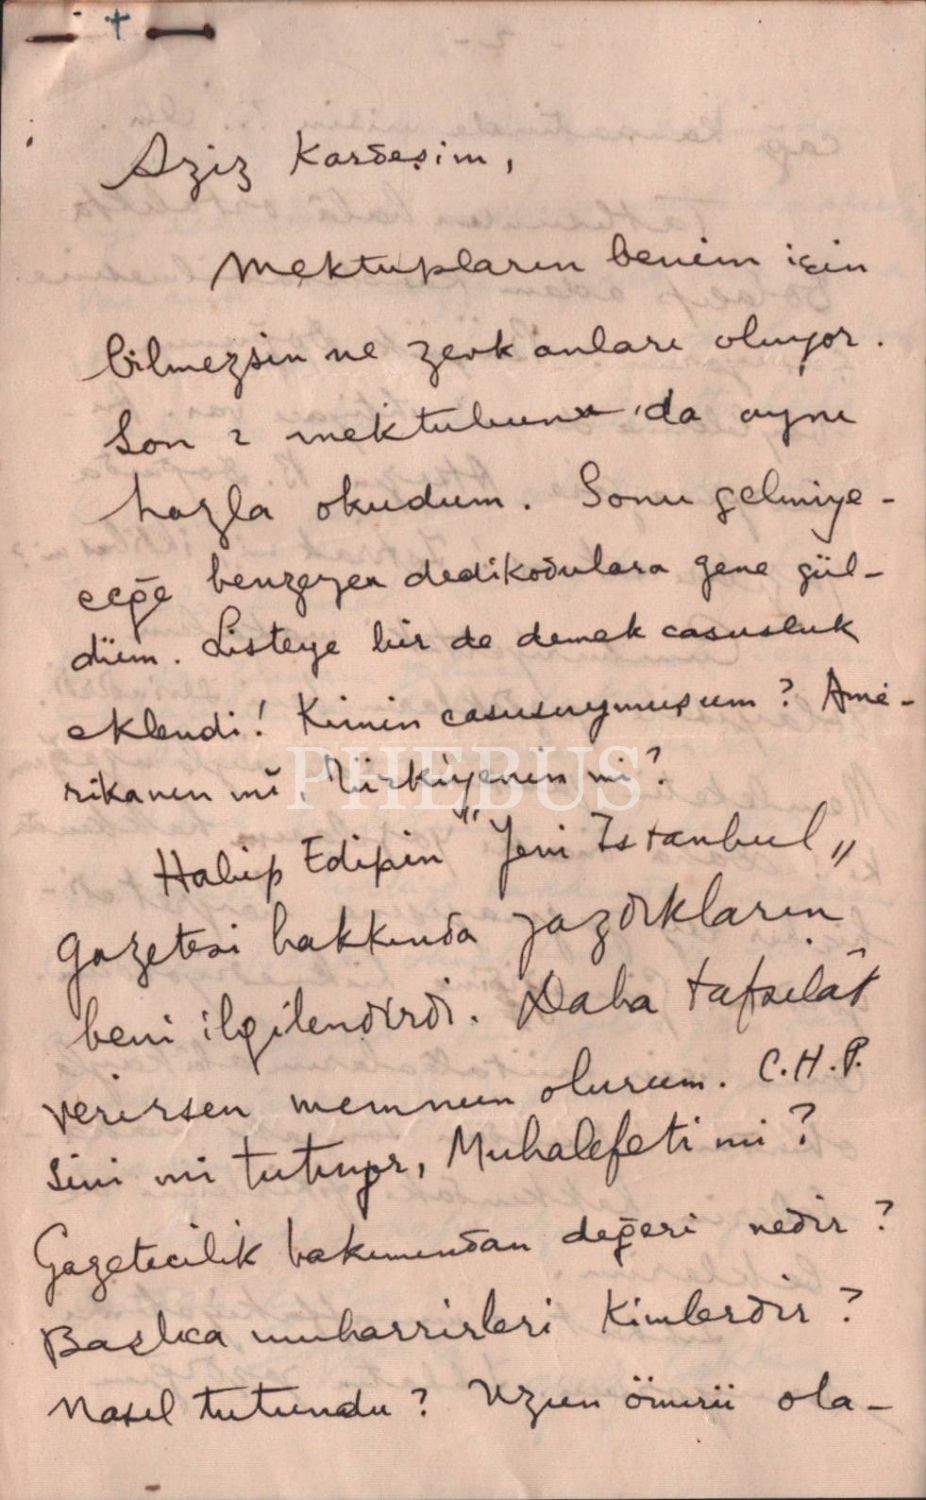 Aziz Kardeşim,
Mektupların benim için
bilmezsin ne zevk anları oluyor.
Son 2 mektubunu da aynı
hazla okudum. Sonu gelmiye-
ceğe benzeyen dedikodulara gene gül-
düm. Listeye bir de demek casusluk
eklendi! Kimin casusuymuşum? Ame-
rikanın mı, Türkiyenin mi?
PHEBUS
Habip Edipin "Yeni İstanbul„
gazetesi hakkında yazdıkların
beni ilgilendirdi. Daha tafsilât
verirsen memnun olurum. C.H.P.
sini mi tutuyor, Muhalefeti mi?
Gazetecilik bakımından değeri nedir?
Başlıca muharrirleri kimlerdir?
Nasıl tutundu? Uzun ömürü ola-